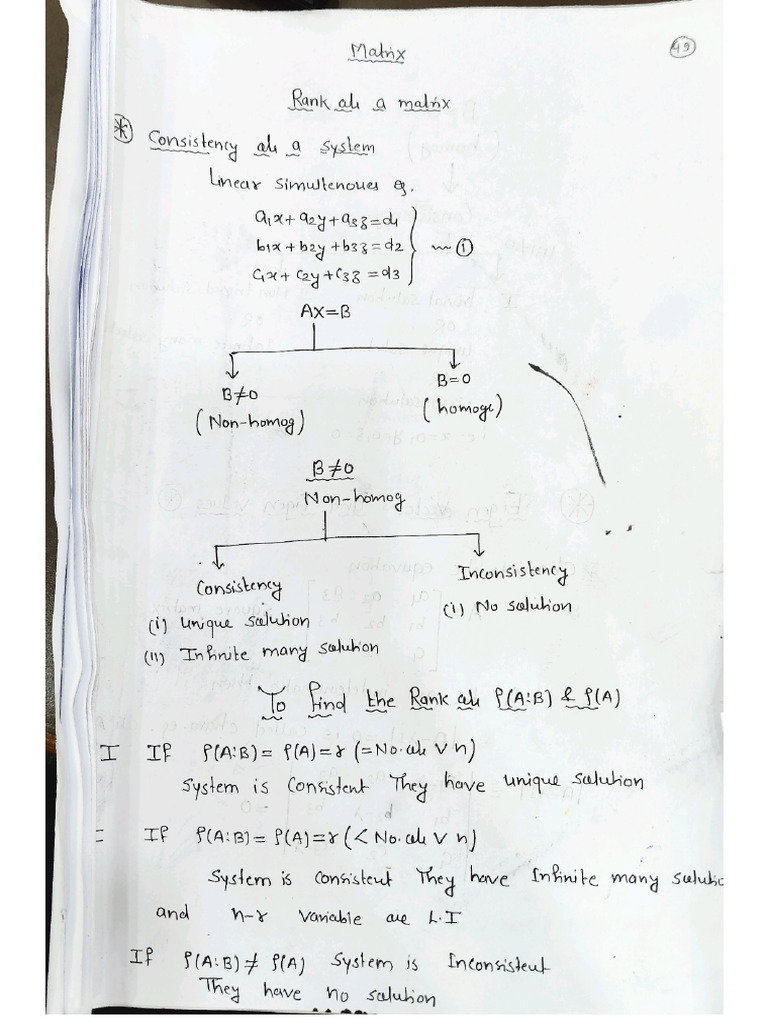 Matrix
49
Rank of a matrix
* Consistency of a system
Linear simultenoues eq.
a1x + a2y + a3z = d1
b1x + b2y + b3z = d2 ①
c1x + c2y + c3z = d3
AX = B
B≠0 B=0
(Non-homog) (homoge)
B≠0
Non-homog
Consistency Inconsistency
(i) unique solution (i) No solution
(ii) Infinite many solution
To find the Rank of ρ(A:B) & ρ(A)
I If ρ(A:B) = ρ(A) = r (= No. of V n)
System is consistent They have unique solution
= If ρ(A:B) = ρ(A) = r (< No. of V n)
System is consistent They have Infinite many solutio
and n-r variable are L.I
If ρ(A:B) ≠ ρ(A) System is Inconsistent
They have no solution